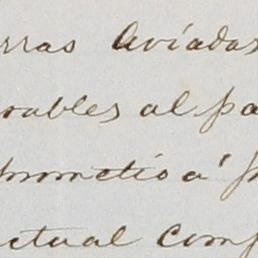 rras Aviadas
rables al pa
prometió á p
ctual comp